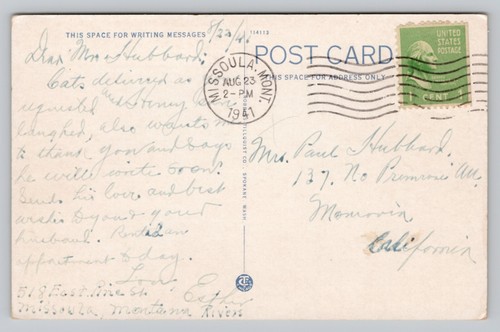 THIS SPACE FOR WRITING MESSAGES 8/22/41
114113
POST CARD
THIS SPACE FOR ADDRESS ONLY
UNITED
STATES
POSTAGE
1 CENT 1
MISSOULA, MONT.
AUG 23
2-PM
1941
Dear Mrs Hubbard;
Cats delivered as
requested
laughed, also wants me
to thank you and says
he will write soon.
Sends his love and best
wishes to you and your
husband.
apartment today.
Love
Esther
518 East Pine St
Missoula, Montana Rivers
Mrs. Paul Hubbard
137 No Primrose Ave
Monrovia
California